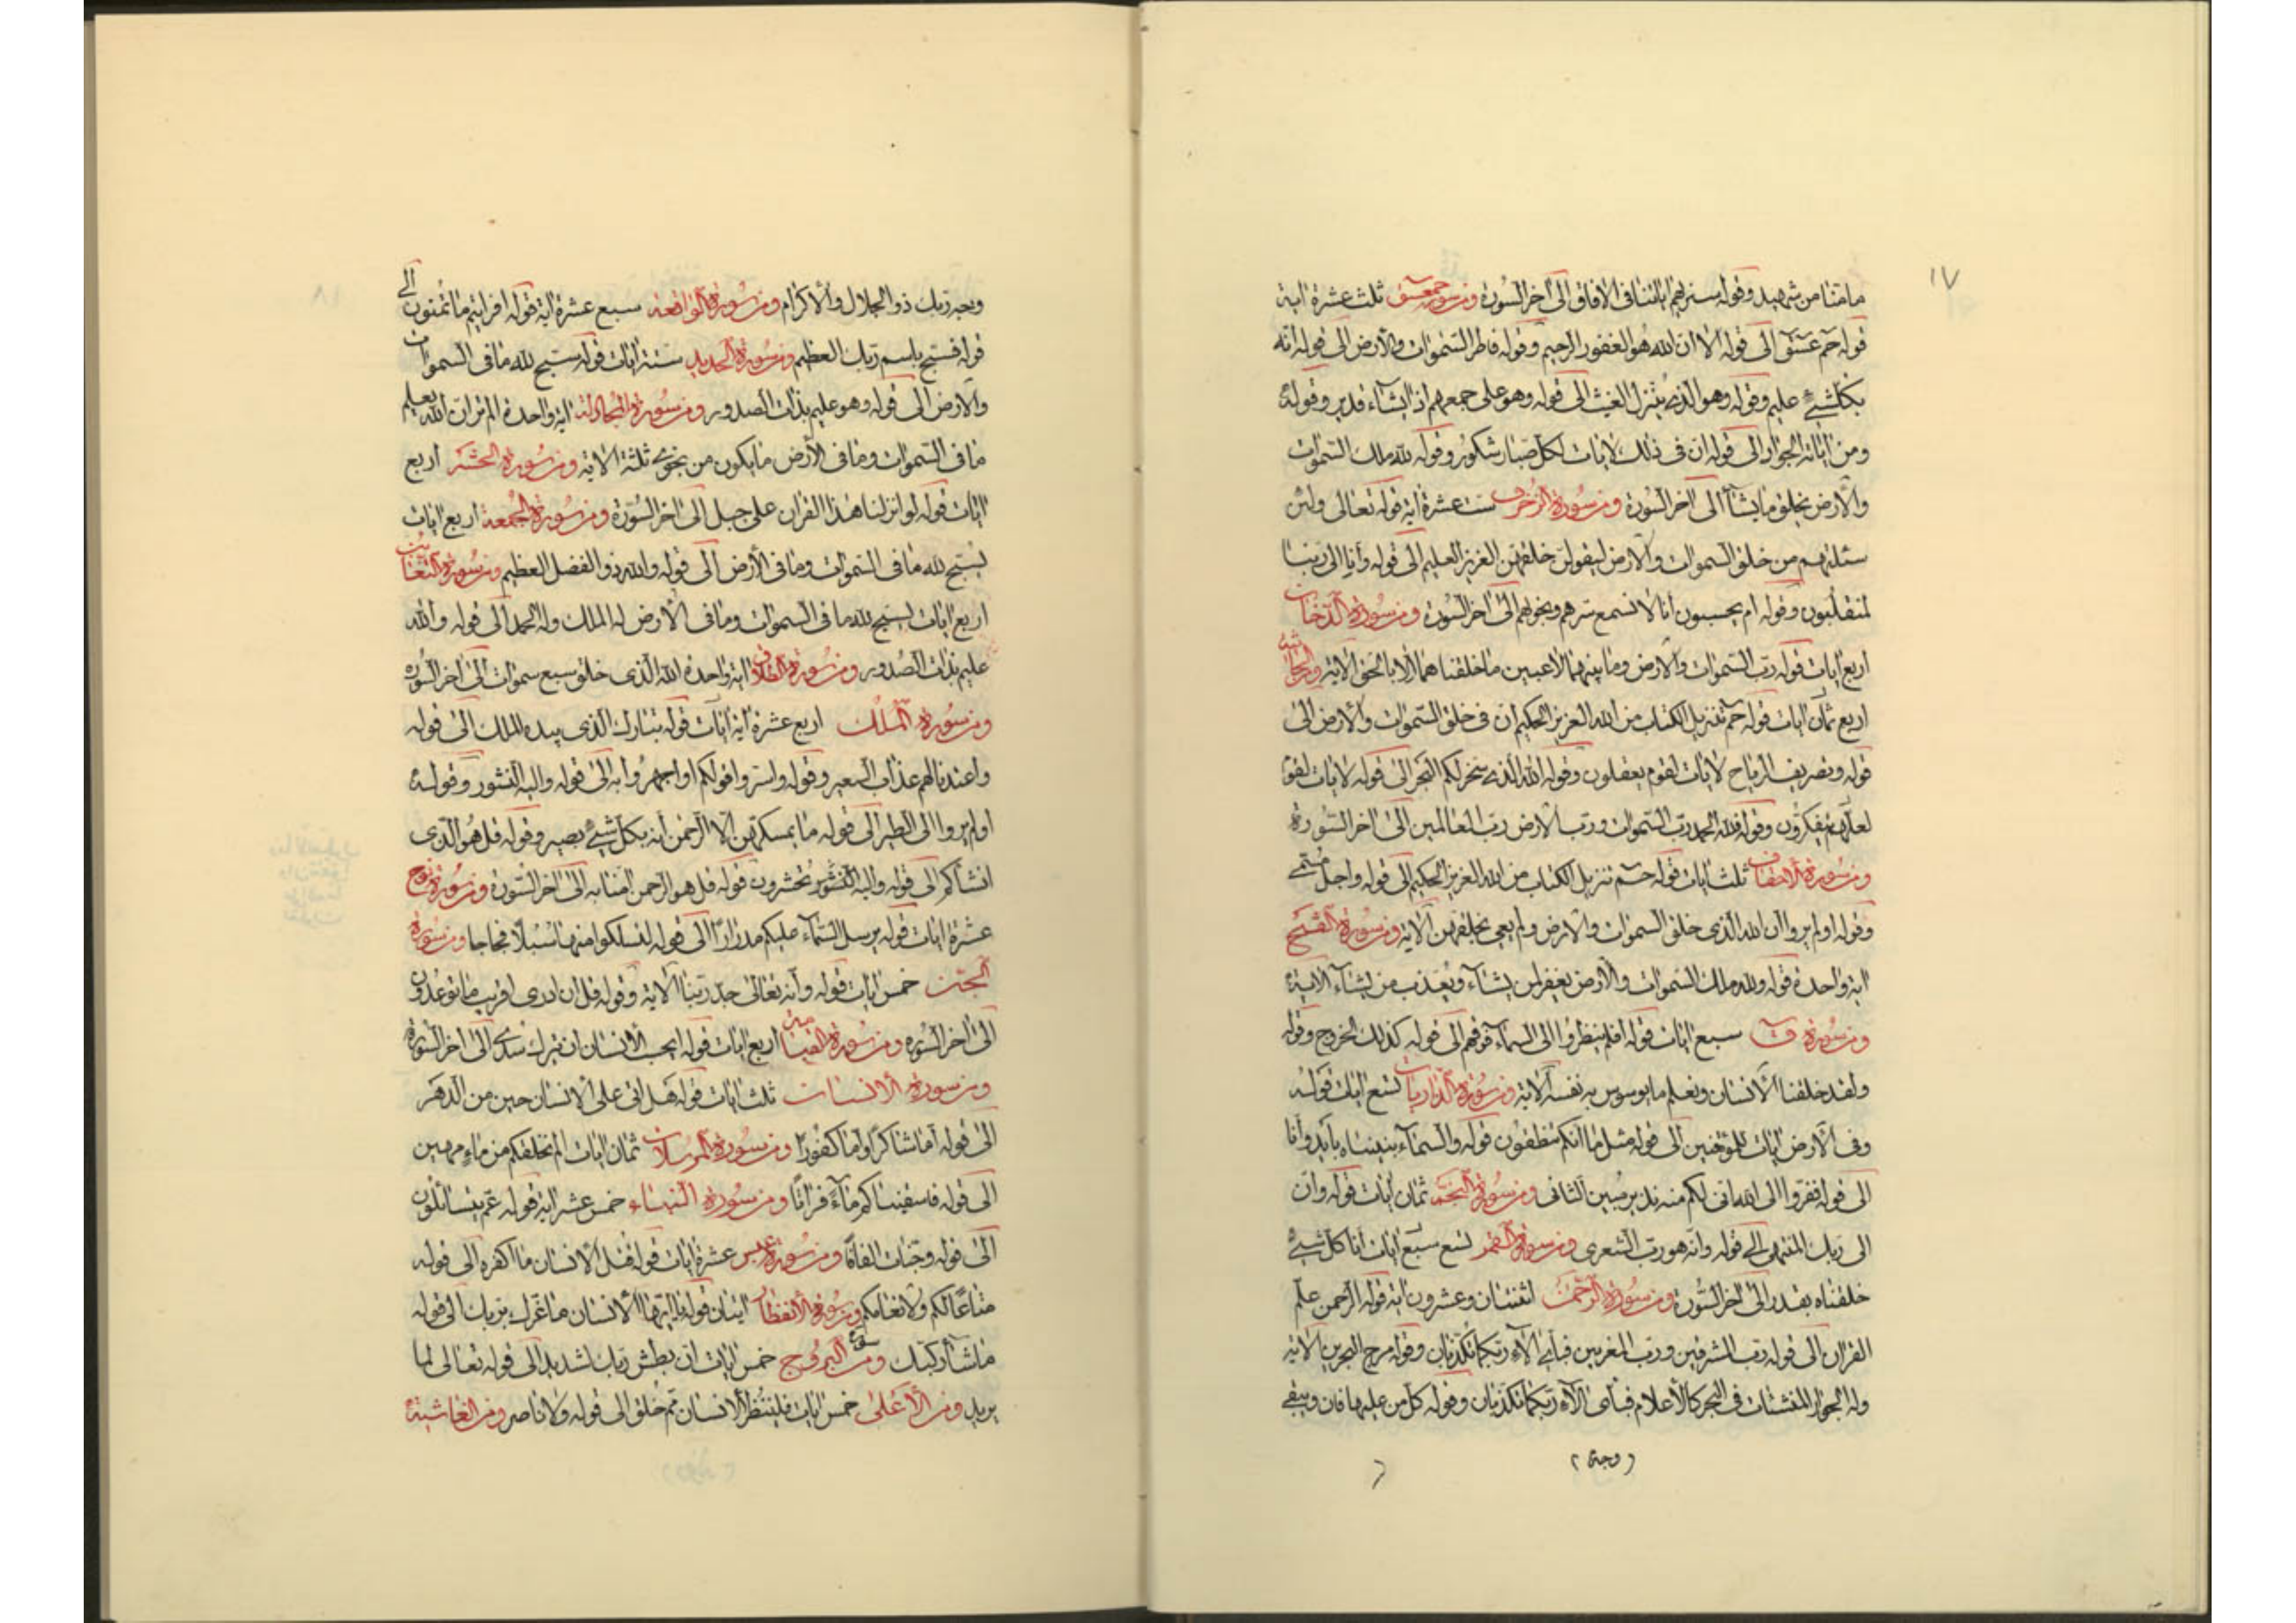 ١٧
مامنا من شهيد وقوله سنريهم اياتنا فى الافاق الى اخر السورة ومن سورة حمعسق ثلث عشرة اية
قوله حم عسق الى قوله الا ان الله هو الغفور الرحيم وقوله فاطر السموات والارض الى قوله انه
بكل شيء عليم وقوله وهو الذى ينزل الغيث الى قوله وهو على جمعهم اذا يشاء قدير وقوله
ومن اياته الجوار الى قوله ان فى ذلك لايات لكل صبار شكور وقوله لله ملك السموات
والارض يخلق ما يشآء الى اخر السورة ومن سورة الزخرف ست عشرة اية قوله تعالى ولئن
سئلتهم من خلق السموات والارض ليقولن خلقهن العزيز العليم الى قوله وانا الى ربنا
لمنقلبون وقوله ام يحسبون انا لا نسمع سرهم ونجويهم الى اخر السورة ومن سورة الدخان
اربع ايات قوله رب السموات والارض وما بينهما لاعبين ما خلقناهما الا بالحق الاية والجاثية
اربع ثمان ايات قوله حم تنزيل الكتاب من الله العزيز الحكيم ان فى خلق السموات والارض الى
قوله وتصريف الرياح لايات لقوم يعقلون وقوله الله الذى سخر لكم البحر الى قوله لايات لقوم
لعلهم يتفكرون وقوله فلله الحمد رب السموات ورب الارض رب العالمين الى اخر السورة
ومن سورة الاحقاف ثلث ايات قوله حم تنزيل الكتاب من الله العزيز الحكيم الى قوله واجل مسمى
وقوله اولم يروا ان الله الذى خلق السموات والارض ولم يعى بخلقهن الاية ومن سورة الفتح
اية واحدة قوله ولله ملك السموات والارض يغفر لمن يشاء ويعذب من يشاء الاية
ومن سورة ق سبع ايات قوله افلم ينظروا الى السماء فوقهم الى قوله كذلك الخروج وقوله
ولقد خلقنا الانسان ونعلم ما يوسوس به نفسه الاية ومن سورة الذاريات تسع ايات قوله
وفى الارض ايات للموقنين الى قوله مثل ما انكم تنطقون قوله والسماء بنيناها بايد وانا
الى قوله ففروا الى الله انى لكم منه نذير مبين الثانى ومن سورة النجم ثمان ايات قوله وان
الى ربك المنتهى الى قوله وانه هو رب الشعرى ومن سورة القمر تسع سبع ايات انا كل شيء
خلقناه بقدر الى اخر السورة ومن سورة الرحمن اثنتان وعشرون اية قوله الرحمن علم
القران الى قوله رب المشرقين ورب المغربين فباى الاء ربكما تكذبان وقوله مرج البحرين الاية
وله الجوار المنشئات فى البحر كالاعلام فباى الاء ربكما تكذبان وقوله كل من عليها فان ويبقى
وجه
وجه ربك ذو الجلال والاكرام ومن سورة الواقعة سبع عشرة اية قوله افرايتم ما تمنون الى
قوله فسبح باسم ربك العظيم ومن سورة الحديد ستة ايات قوله سبح لله ما فى السموات
والارض الى قوله وهو عليم بذات الصدور ومن سورة المجادلة اية واحدة الم تر ان الله يعلم
ما فى السموات وما فى الارض ما يكون من نجوى ثلثة الاية ومن سورة الحشر اربع
ايات قوله لو انزلنا هذا القران على جبل الى اخر السورة ومن سورة الجمعة اربع ايات
يسبح لله ما فى السموات وما فى الارض الى قوله والله ذو الفضل العظيم ومن سورة التغابن
اربع ايات يسبح لله ما فى السموات وما فى الارض له الملك وله الحمد الى قوله والله
عليم بذات الصدور ومن سورة الطلاق اية واحدة الله الذى خلق سبع سموات الى اخر السورة
ومن سورة الملك اربع عشرة اية ايات قوله تبارك الذى بيده الملك الى قوله
واعتدنا لهم عذاب السعير وقوله واسروا قولكم او اجهروا به الى قوله واليه النشور وقوله
اولم يروا الى الطير الى قوله ما يمسكهن الا الرحمن انه بكل شيء بصير وقوله قل هو الذى
انشاكم الى قوله واليه النشور تحشرون قوله قل هو الرحمن امنا به الى اخر السورة ومن سورة نوح
عشرة ايات قوله يرسل السماء عليكم مدرارا الى قوله لتسلكوا منها سبلا فجاجا ومن سورة
الجن خمس ايات قوله وانه تعالى جد ربنا الاية وقوله قل ان ادرى اقريب ما توعدون
الى اخر السورة ومن سورة القيامة اربع ايات قوله ايحسب الانسان ان يترك سدى الى اخر السورة
ومن سورة الانسان ثلث ايات قوله هل اتى على الانسان حين من الدهر
الى قوله اما شاكرا واما كفورا ومن سورة المرسلات ثمان ايات الم نخلقكم من ماء مهين
الى قوله فاسقيناكم ماءً فراتا ومن سورة النباء خمس عشر اية قوله عم يتسائلون
الى قوله وجنات الفافا ومن سورة عبس عشرة ايات قوله قتل الانسان ما اكفره الى قوله
متاعا لكم ولانعامكم ومن سورة الانفطار ايتان قوله يا ايها الانسان ما غرك بربك الى قوله
ما شاء ركبك ومن سورة البروج خمس ايات ان بطش ربك لشديد الى قوله تعالى لما
يريد ومن الاعلى خمس ايات فلينظر الانسان مم خلق الى قوله ولا ناصر ومن الغاشية